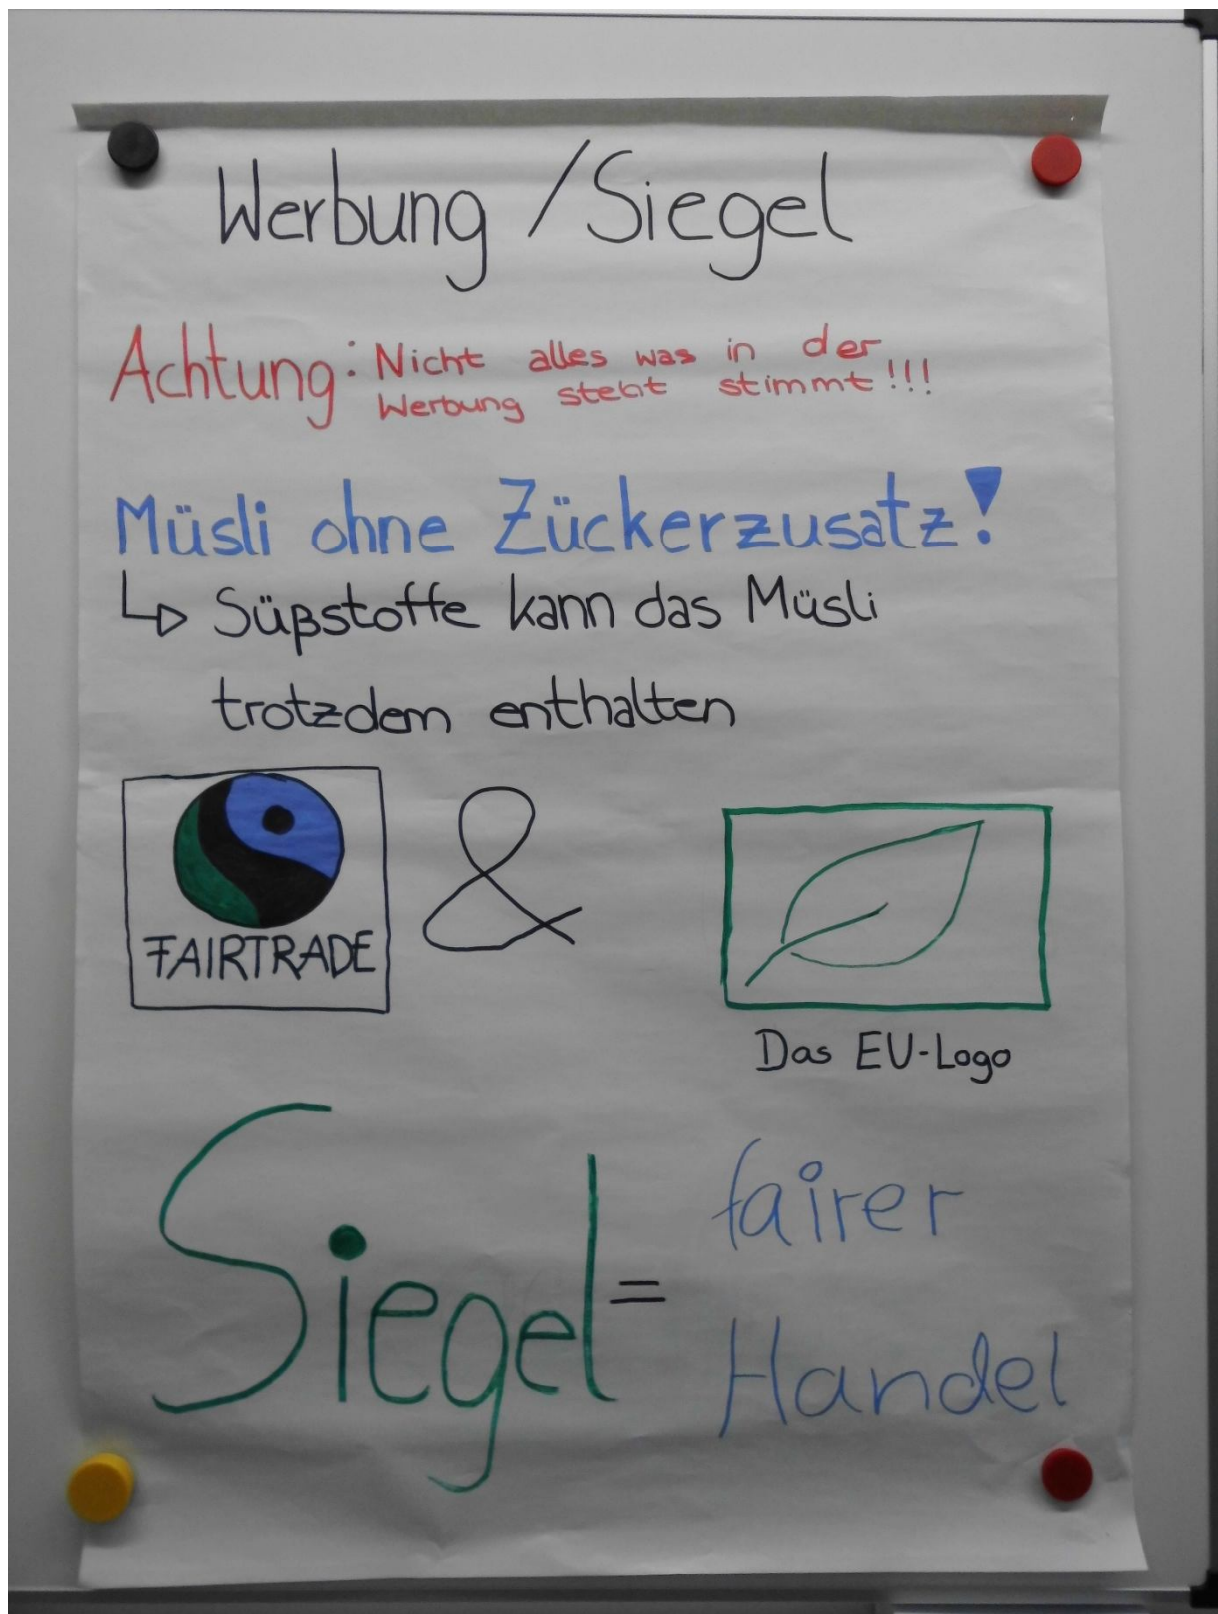 Werbung / Siegel
Achtung: Nicht alles was in der
Werbung steht stimmt!!!
Müsli ohne Zückerzusatz!
↳ Süßstoffe kann das Müsli
trotzdem enthalten
FAIRTRADE
&
Das EU-Logo
Siegel = fairer
Handel